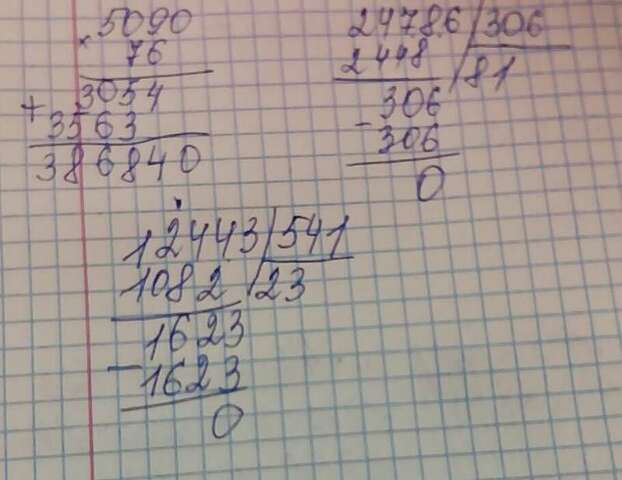 5090
× 76
3054
+ 3563
386840
24786 306
2448 81
306
- 306
0
12443 541
1082 23
1623
- 1623
0